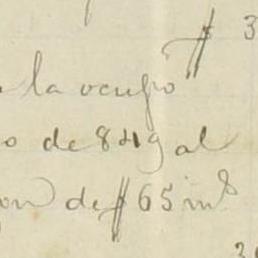 $ 3
la ocupó
o de 849 al
on de $65 ms